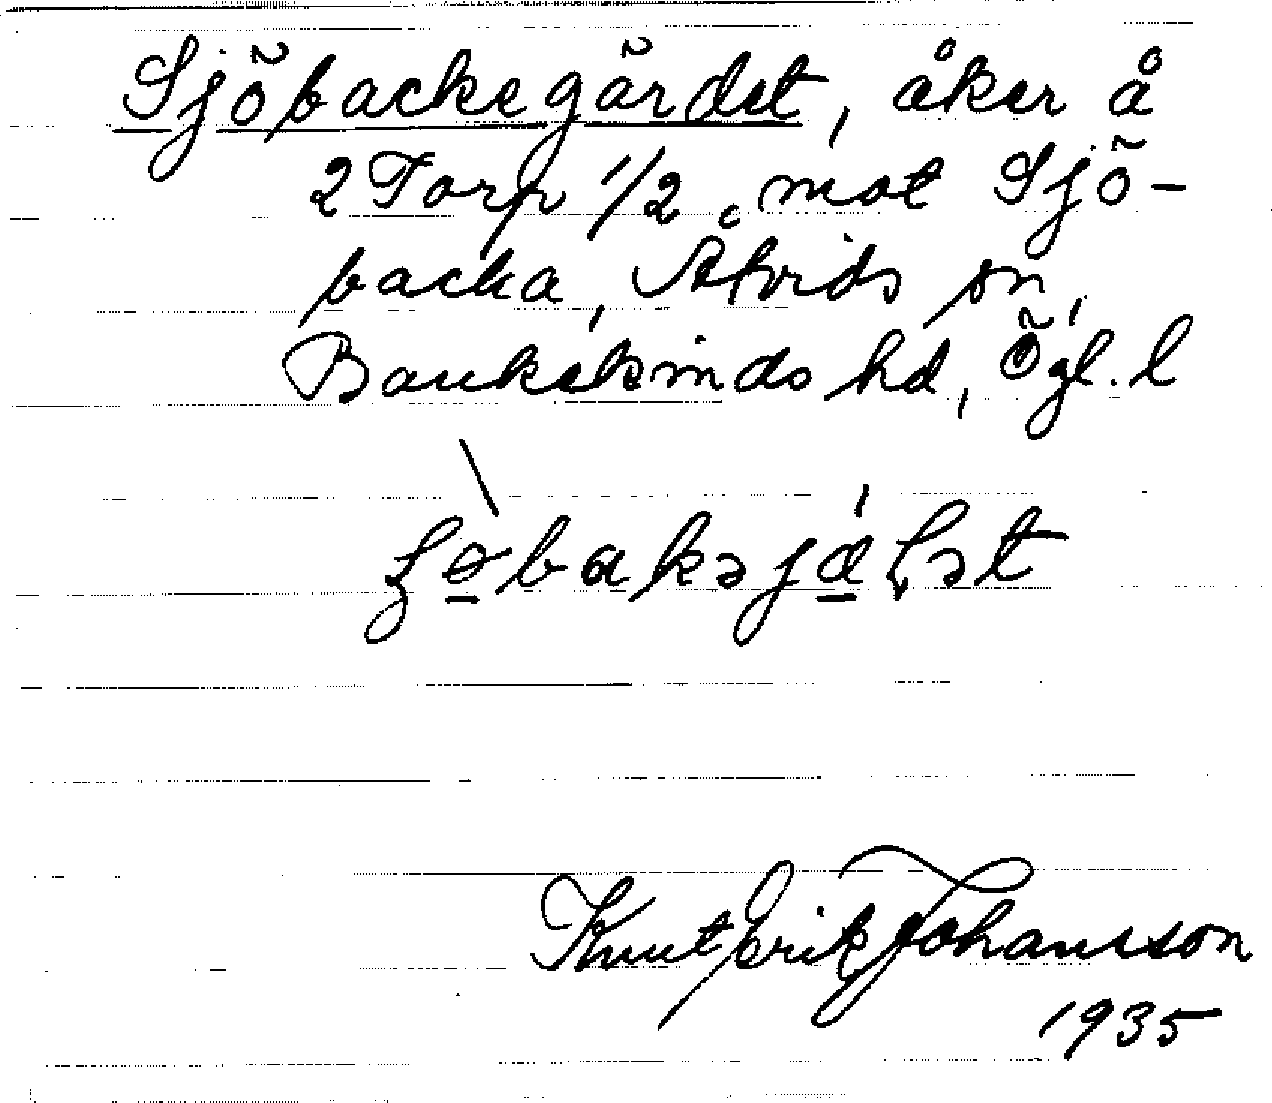 Sjöbackegärdet, åker å
2 Torp 1/2, mot Sjö-
backa, Åtvids sn,
Bankekinds hd, Ögl. l
Knut Erik Johansson
1935